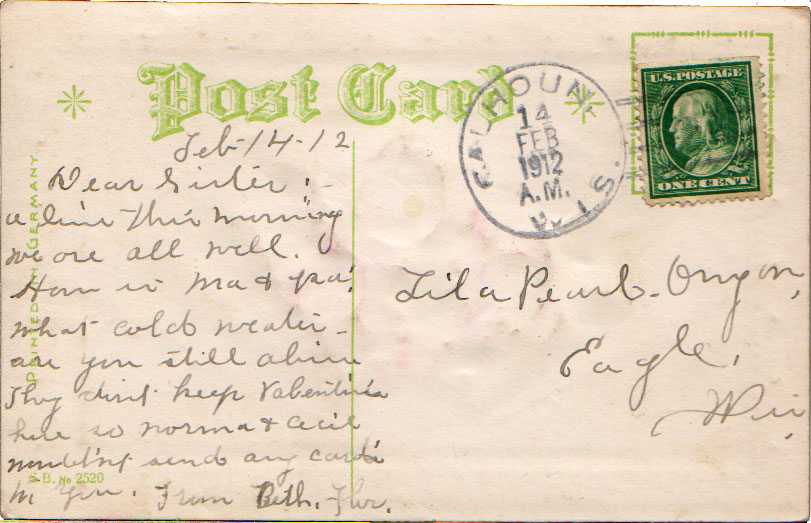 Post Card
CALHOUN
14
FEB
1912
A.M.
WIS.
U.S. POSTAGE
ONE CENT
PRINTED IN GERMANY
Feb-14-12
Dear Sister:-
a line this morning
we are all well.
How is ma & pa?
what cold weather-
are you still alive
They dint keep Valentines
here so norma & Cecil
send any cards
to you. From Beth.
S.B. No 2520
Lila Pearl
Eagle,
Wis,